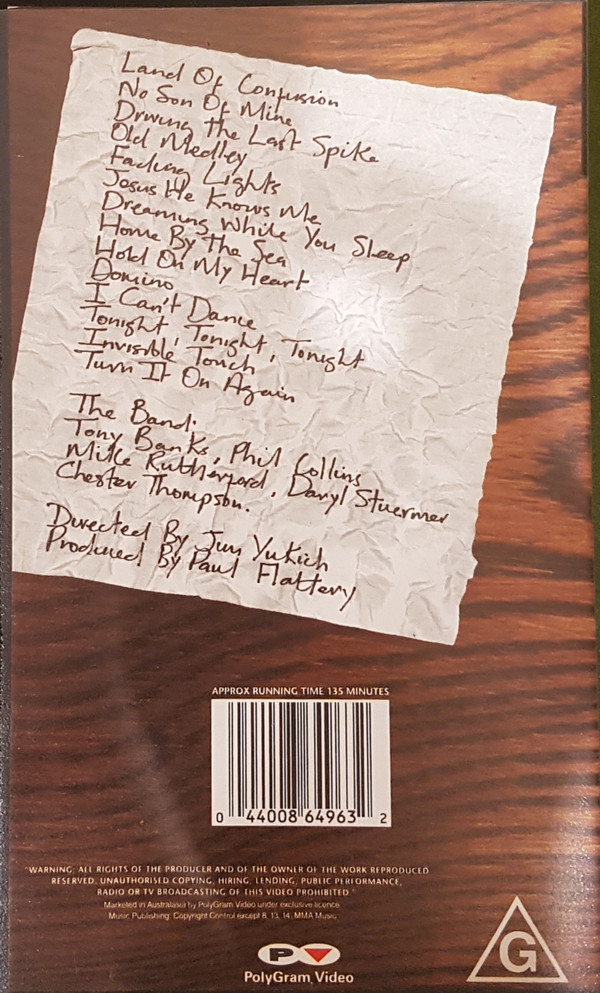 Land Of Confusion
No Son Of Mine
Driving The Last Spike
Old Medley
Fading Lights
Jesus He Knows Me
Dreaming While You Sleep
Home By The Sea
Hold On My Heart
Domino
I Can't Dance
Tonight, Tonight, Tonight
Invisible Touch
Turn It On Again
The Band:
Tony Banks, Phil Collins
Mike Rutherford, Daryl Stuermer
Chester Thompson.
Directed By Jim Yukich
Produced By Paul Flattery
APPROX RUNNING TIME 135 MINUTES
0 44008 64963 2
"WARNING, ALL RIGHTS OF THE PRODUCER AND OF THE OWNER OF THE WORK REPRODUCED
RESERVED. UNAUTHORISED COPYING, HIRING, LENDING, PUBLIC PERFORMANCE,
RADIO OR TV BROADCASTING OF THIS VIDEO PROHIBITED."
Marketed in Australasia by PolyGram Video under exclusive licence
Music Publishing: Copyright Control except 8, 13, 14, MMA Music
PV
PolyGram Video
G